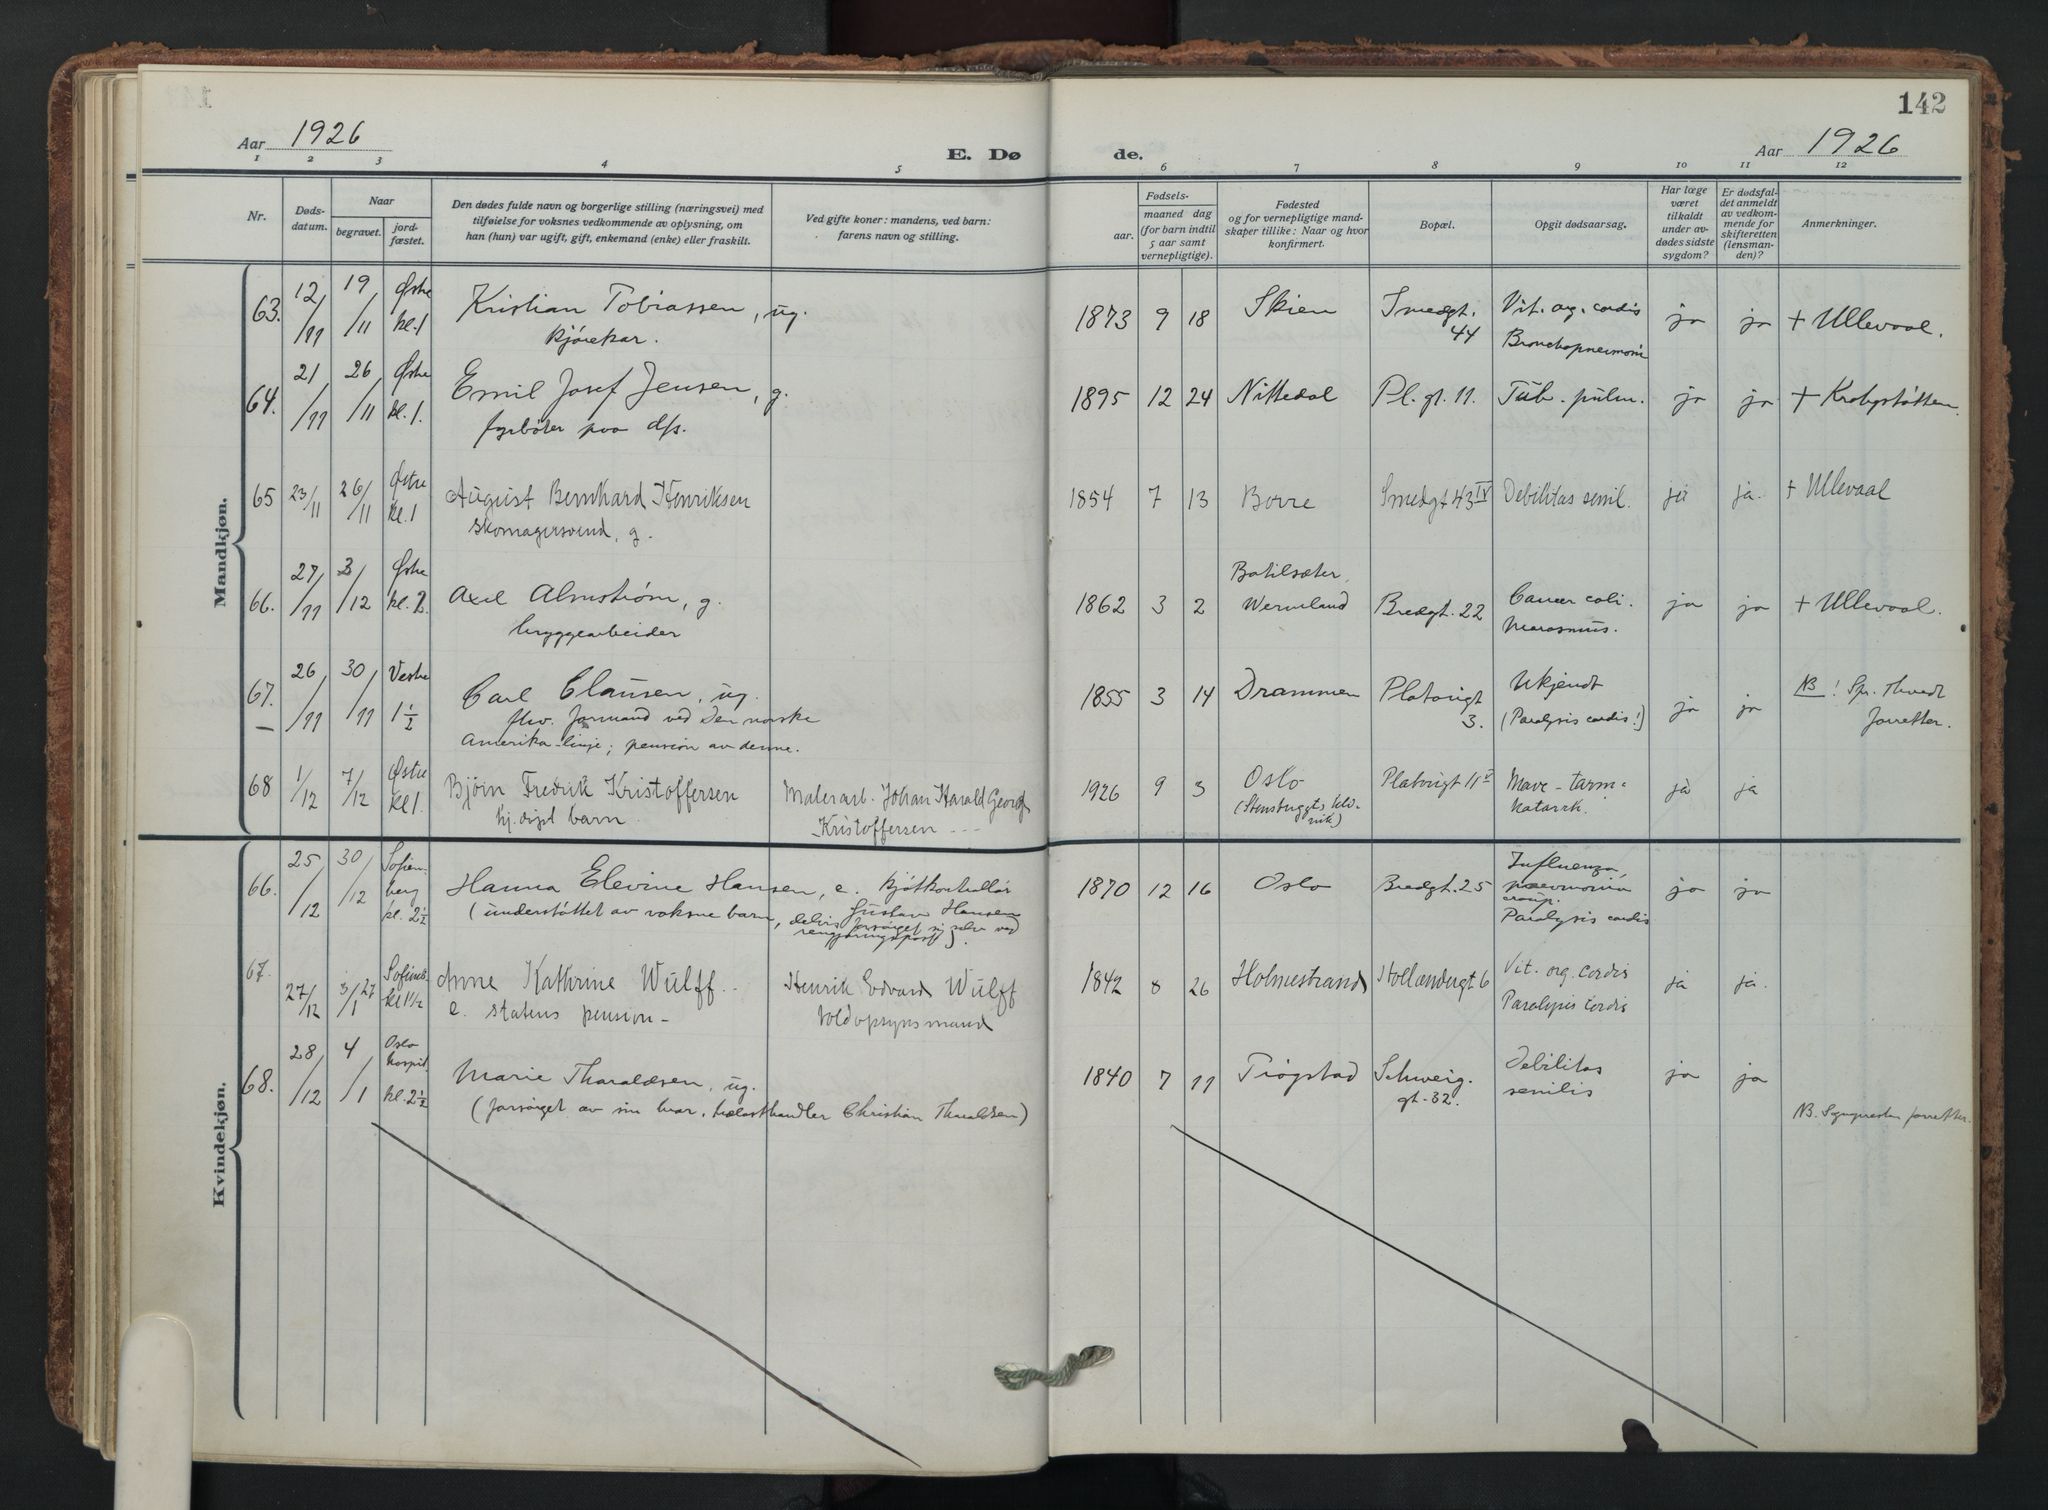 142
Aar 1926
E. Døde.
Aar 1926
1 2 3 4 5 6 7 8 9 10 11 12
Nr.
Døds-datum.
Naar
begravet.
jord-fæstet.
Den dødes fulde navn og borgerlige stilling (næringsvei) med
tilføielse for voksnes vedkommende av oplysning, om
han (hun) var ugift, gift, enkemand (enke) eller fraskilt.
Ved gifte koner: mandens, ved barn:
farens navn og stilling.
Fødsels-
aar.
maaned dag
(for barn indtil
5 aar samt
vernepligtige).
Fødested
og for vernepligtige mand-
skaper tillike: Naar og hvor
konfirmert.
Bopæl.
Opgit dødsaarsag.
Har læge
været
tilkaldt
under av-
dødes sidste
sygdom?
Er dødsfal-
det anmeldt
av vedkom-
mende for
skifteretten
(lensman-
den)?
Anmerkninger.
Mandkjøn.
63. 12/11 19/11 Østre kl. 1 Kristian Tobiassen, ug. 1873 9 18 Skien Smedgt. 44 Vit. og. cordis ja ja + Ullevaal.
kjørekar. Bronchopneumoni
64. 21/11 26/11 Østre kl. 1. Emil Josef Jensen, g. 1895 12 24 Nittedal Pl. gt. 11. Tub. pulm. ja ja + Krohgstøtten.
fyrbøter paa d/s.
65 23/11 26/11 Østre kl. 1 August Bernhard Henriksen 1854 7 13 Borre Smedgt 43 IV Debilitas senil. ja ja. + Ullevaal
skomagersvend, g.
66. 27/11 3/12 Østre kl. 2. Axel Almstrøm, g. 1862 3 2 Wermland Bredgt. 22 Cancer coli. ja ja + Ullevaal.
bryggearbeider marasmus.
67. 26/11 30/11 Vestre 1 1/2 Carl Clausen, ug. 1855 3 14 Drammen Platougt 3. Ukjendt ja ja NB! Spr. Thvedt
fhv. formand ved Den norske (Paralysis cordis!) forretter.
Amerika-linje; pension av denne.
68 1/12 7/12 Østre kl 1. Bjørn Fredrik Kristoffersen Malerarb. Johan Harald Georg 1926 9 3 Oslo Platougt 11 V Mave-tarm- ja ja
hj. døpt barn. Kristoffersen (Stensbuggts klinik) katarrk.
Kvindekjøn.
66. 25/12 30/12 Sofienberg kl. 2 1/2 Hanna Elevine Hansen, e. kjøtkontrollør 1870 12 16 Oslo Bredgt. 25 Influenza, ja ja
Gustav Hansen pneumonia
(understøttet av voksne barn, delvis forsørget sig selv ved croup.
rengjøringspost). Paralysis cordis
67. 27/12 3/1 27 Sofienb. kl 1 1/2 Anne Kathrine Wulff Henrik Edvard Wulff 1842 8 26 Holmestrand Hollændergt 6 Vit. org. cordis ja ja.
e. statens pension - toldopsynsmand Paralysis cordis
68. 28/12 4/1 Oslo hospit. kl. 2 1/2 Marie Tharaldsen, ug. 1840 7 11 Trøgstad Schweig. gt. 32. Debilitas ja ja
(forsørget av sin bror, trælasthandler Christian Tharaldsen) senilis
NB. Sognepresten forretter.